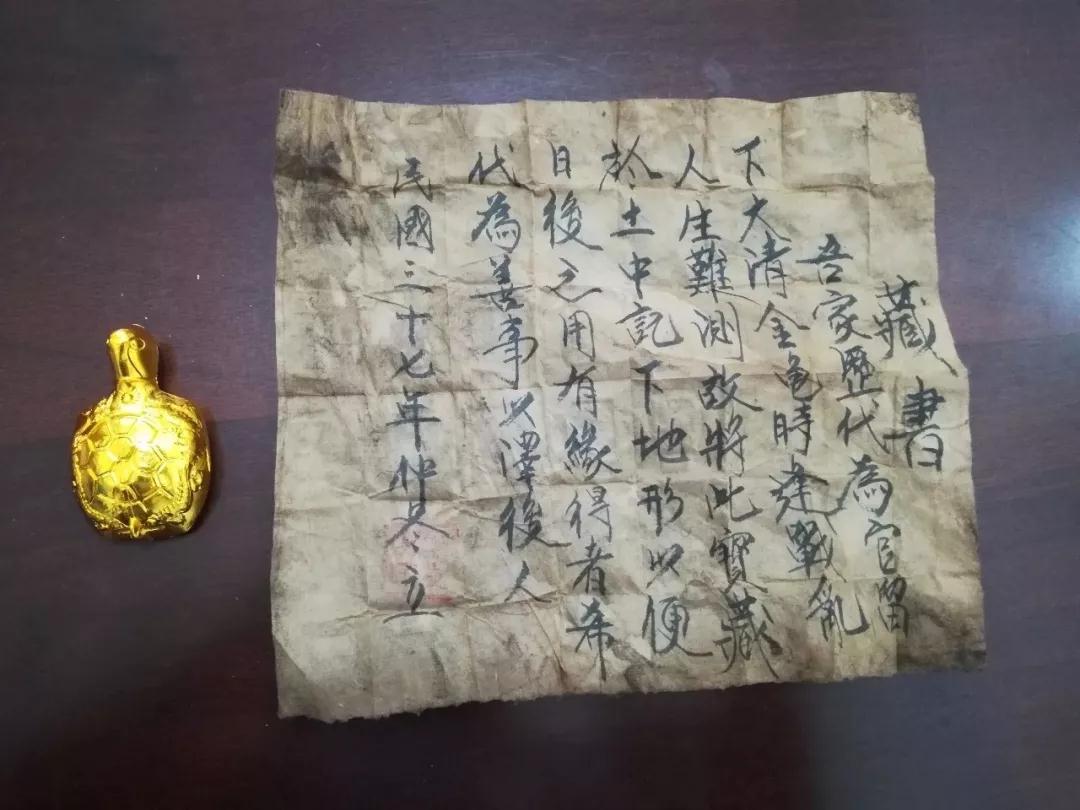 藏書
吾家歷代為官留
下大清金龜時逢戰亂
人生難測故將此寶藏
於土中記下地形以便
日後之用有緣得者希
代為善事以澤後人
民國三十七年仲冬立